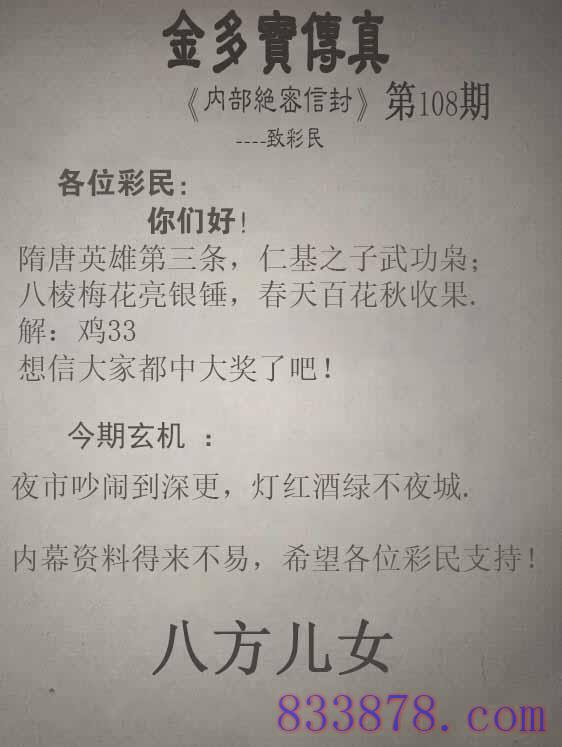 金多寶傳真
《内部絶密信封》第108期
----致彩民
各位彩民:
你们好!
隋唐英雄第三条，仁基之子武功枭;
八棱梅花亮银锤，春天百花秋收果.
解：鸡33
想信大家都中大奖了吧!
今期玄机 ：
夜市吵闹到深更，灯红酒绿不夜城.
内幕资料得来不易，希望各位彩民支持!
八方儿女
833878.com